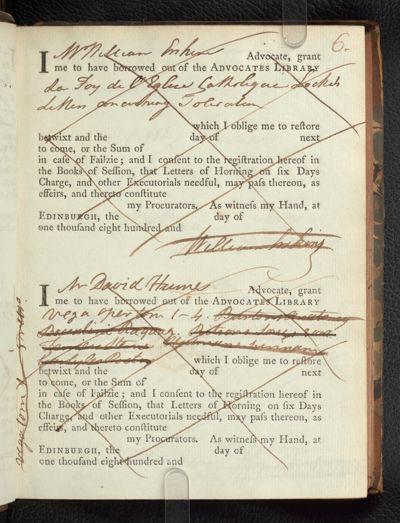 6.
I Mr William Erskine Advocate, grant
me to have borrowed out of the ADVOCATES LIBRARY
la Foy de l'Eglise Catholique Locke's
Letters concerning Toleration
which I oblige me to reſtore
betwixt and the day of next
to come, or the Sum of
in caſe of Failzie; and I conſent to the regiſtration hereof in
the Books of Seſſion, that Letters of Horning on ſix Days
Charge, and other Executorials needful, may paſs thereon, as
effeirs, and thereto conſtitute
my Procurators. As witneſs my Hand, at
EDINBURGH, the day of
one thouſand eight hundred and
William Erskine
I Mr David Hume Advocate, grant
me to have borrowed out of the ADVOCATES LIBRARY
Vega opera tom 1-4.
which I oblige me to reſtore
betwixt and the day of next
to come, or the Sum of
in caſe of Failzie; and I conſent to the regiſtration hereof in
the Books of Seſſion, that Letters of Horning on ſix Days
Charge, and other Executorials needful, may paſs thereon, as
effeirs, and thereto conſtitute
my Procurators. As witneſs my Hand, at
EDINBURGH, the day of
one thouſand eight hundred and